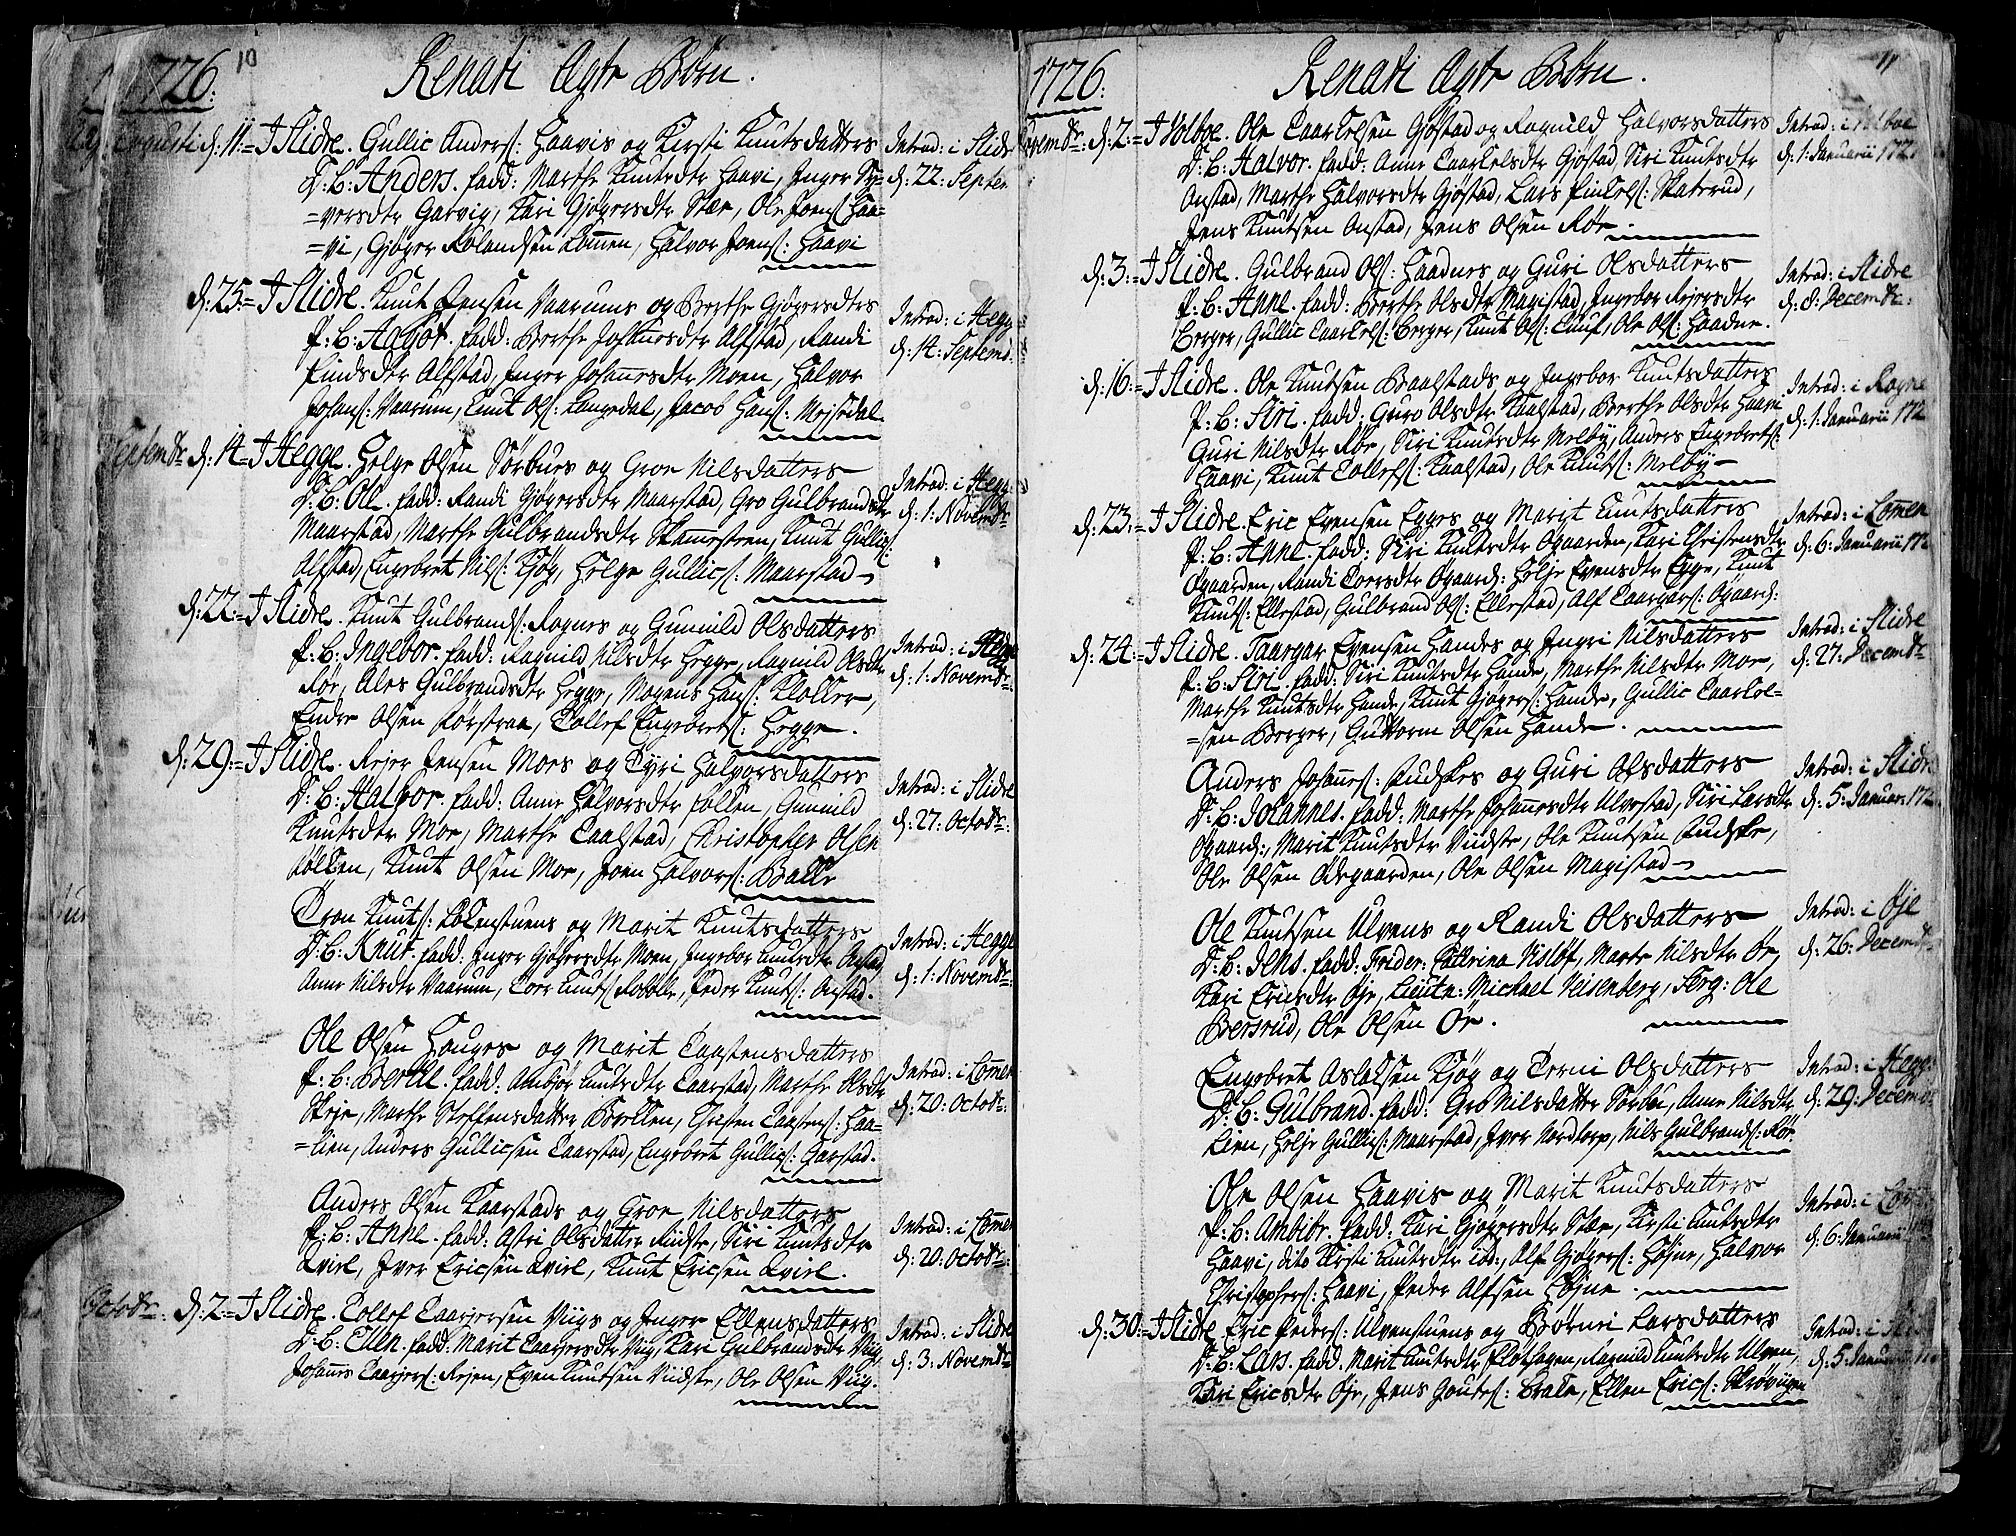 1726. 10 Renati Ægte Børn.
Augusti d: 11:= I Slidre. Gullic Anders: Haavis og Kersti Knutsdatters
D: B: Anders. fadd: Marthe Knutsdtr Haavi, Inger Sy-
=versdtr Garvig, Kari Gjøgersdtr Stæe, Ole Joens: Haa-
=vi, Gjøger Rolandsen Lomen, Halvor Joens: Haavi
Introd: i Slidr
d: 22: Septem
d: 25:= I Slidre. Knut Jensen Vaarums og Berthe Gjøgersdtrs
P: B: Aagot. fadd: Berthe Johansdtr Alfstad, Randi
Findsdtr Alfstad, Inger Johannesdtr Moen, Halvor
Johans: Vaarum, Knut Ols: Langedal, Jacob Hans: Mejsedal
Introd: i Hegg
d: 14: Septemb
Septembr d: 14= I Hegge. Helge Olsen Sørbues og Groe Nilsdatters
D: B: Ole. fadd: Randi Gjøgersdtr Maarstad, Gro Gulbrandsdtr
Maarstad, Marthe Gulbrandsdtr Skamesteen, Knut Gullics:
Alfstad, Engebret Nils: Kjøg, Helge Gullics: Maarstad
Introd: i Hegg
d: 1: Novembr
d: 22:= I Slidre. Knut Gulbrands: Rognes og Gunild Olsdatters
P: B: Ingebor. fadd: Ragnild Nilsdtr Hegge, Ragnild Olsdtr
Røe, Ales Gulbrandsdtr Hegge, Mogens Hans: Kloller,
Endre Olsen Rørstraa, Tollef Engebrets: Hegge.
Introd: i Hegge
d: 1: Novembr:
d: 29:= I Slidre. Rejer Jensen Moes og Tyri Halvorsdatters
D: B: Halvor. fadd: Anne Halvorsdtr Follen, Gunild
Knutsdtr Moe, Marthe Taalstad, Christopher Olsen
Follen, Knut Olsen Moe, Joen Halvors: Balle
Introd: i Slidre
d: 27: Octobr:
Tron Knuts: Lokenstuens og Marit Knutsdatters
D: B: Knut. fadd: Inger Gjøgersdtr Moen, Ingebor Knutsdtr Onstad,
Anne Nilsdtr Vaarum, Toer Knuts: Robøle, Peder Knuts: Onstad.
Introd: i Hegge
d: 1: Novembr:
Ole Olsen Hauges og Marit Taastensdatters
P: B: Berthe. fadd: Ambjør Knutsdtr Taarstad, Marthe Olsdtr
Skeje, Marthe Steffensdatter Bøellen, Christen Taastens: Haa-
=lien, Anders Gullicsen Taarstad, Engebret Gullics: Garstad.
Introd: i Lomen
d: 20: Octobr:
Anders Olsen Kaarstads og Groe Nilsdatters
P: B: Anne. fadd: Astri Olsdatter Rudste, Siri Knutsdtr
Qvirl, Iver Ericsen Qvirl, Knut Ericsen Qvirl.
Introd: i Lomen
d: 20: Octobr:
Octobr: d: 2:= I Slidre. Tollef Taarjersen Viigs og Inger Ellensdatters
D: B: Ellen. fadd: Marit Taarjersdtr Viig, Kari Gulbrandsdtr Viig,
Johannes Taarjers: Rejen, Even Knutsen Viidste, Ole Olsen Viig.
Introd: i Slidre
d: 3: Novembr
1726: Renati Ægte Børn. 11
Novembr: d: 2:= I Volboe. Ole Taarkelsen Gjøstad og Ragnild Halvorsdatters
D: B: Halvor. fadd: Anne Taarkelsdtr Gjøstad, Siri Knutsdtr
Onstad, Marthe Halvorsdtr Gjøstad, Lars Finkels: Skaterud,
Jens Knutsen Onstad, Jens Olsen Røe.
Introd: i Volboe
d: 1: Januarii 172
d: 3:= I Slidre. Gulbrand Ols: Haadnes og Guri Olsdatters
P: B: Anne. fadd: Berthe Olsdtr Magistad, Ingebor Rejersdtr
Berger, Gullic Taarkels: Berger, Knut Ols: Lunf, Ole Ols: Haadne.
Introd: i Slidre
d: 8: Decembr:
d: 16:= I Slidre. Ole Knutsen Braalstads og Ingebor Knutsdatters
P: B: Siri. fadd: Guro Olsdtr Kaalstad, Berthe Olsdtr Haavi
Guri Nilsdtr Røe, Siri Knutsdtr Melby, Anders Engebrets:
Haavi, Knut Tollefs: Kaalstad, Ole Knuts: Melby
Introd: i Rogne
d: 1: Januarii 172
d: 23:= I Slidre. Eric Evensen Egges og Marit Knutsdatters
P: B: Anne. fadd: Siri Knutsdtr Øgaarden, Kari Christensdtr
Øgaarden, Randi Toersdtr Øgaard: Helje Evensdtr Egge, Knut
Knuts: Ellestad, Gulbrand Ols: Ellestad, Alf Taargars: Øgaard:
Introd: i Lomen
d: 6: Januarii 172
d: 24:= I Slidre. Taargar Evensen Handes og Ingri Nilsdatters
P: B: Siri. fadd: Siri Knutsdtr Hande, Marthe Nilsdtr Moe,
Marthe Knutsdtr Hande, Knut Gjøgers: Hande, Gullic Taarkel-
=sen Berger, Guttorm Olsen Hande.
Introd: i Slidre
d: 27: Decembr
Anders Johannes: Rudskes og Guri Olsdatters
D: B: Johannes. fadd: Marthe Johannesdtr Ulvestad, Siri Larsdtr
Øgaard:, Marit Knutsdtr Viidste, Ole Knutsen Rudske,
Ole Olsen Ødegaarden, Ole Olsen Magistad
Introd: i Slidr
d: 5: Januar: 172
Ole Knutsen Ulvens og Randi Olsdatters
D: B: Jens. fadd: Frider: Cathrina Visløf, Marte Nilsdtr Øe,
Kari Ericsdtr Øje, Lieutn: Michael Neisenberg, Serg: Ole
Bersrud, Ole Olsen Øe.
Introd: i Øje
d: 26: Decembr
Engebret Aslaksen Kjøg og Torni Olsdatters
D: B: Gulbrand. fadd: Gro Nilsdatter Sørbu, Anne Nilsdtr
Lien, Helje Gullics: Maarstad, Iver Nordtorp, Nils Gulbrands: Røe.
Introd: i Hegge
d: 29: Decemb
Ole Olsen Haavis og Marit Knutsdatters
P: B: Ambiør. fadd: Kari Gjøgersdtr Stæe, Kirsti Knutsdtr
Haavi, dito Kirsti Knutsdtr ibd:, Alf Gjøgers: Højne, Halvor
Christophers: Haavi, Peder Alfsen Højne.
Introd: i Lom
d: 6: Januarii
d: 30:= I Slidre. Eric Peders: Ulvenstuens og Børnei Larsdatters
D: B: Lars. fadd: Marit Knutsdtr Fløthagen, Ragnild Knutsdtr Ulven,
Kari Ericsdtr Øje, Jens Goutes: Brate, Ellen Erics: Skrøvigen
Introd: i Slid
d: 5: Januarii